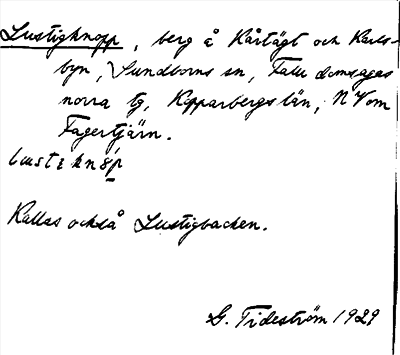 Lustigknopp, berg å Kårtägt och Karls-
byn, Sundborns sn, Falu domsagas
norra tg, Kopparbergs län, NV om
Fagertjärn.
lustiknöp
Kallas också Lustigbacken.
G. Tideström 1929